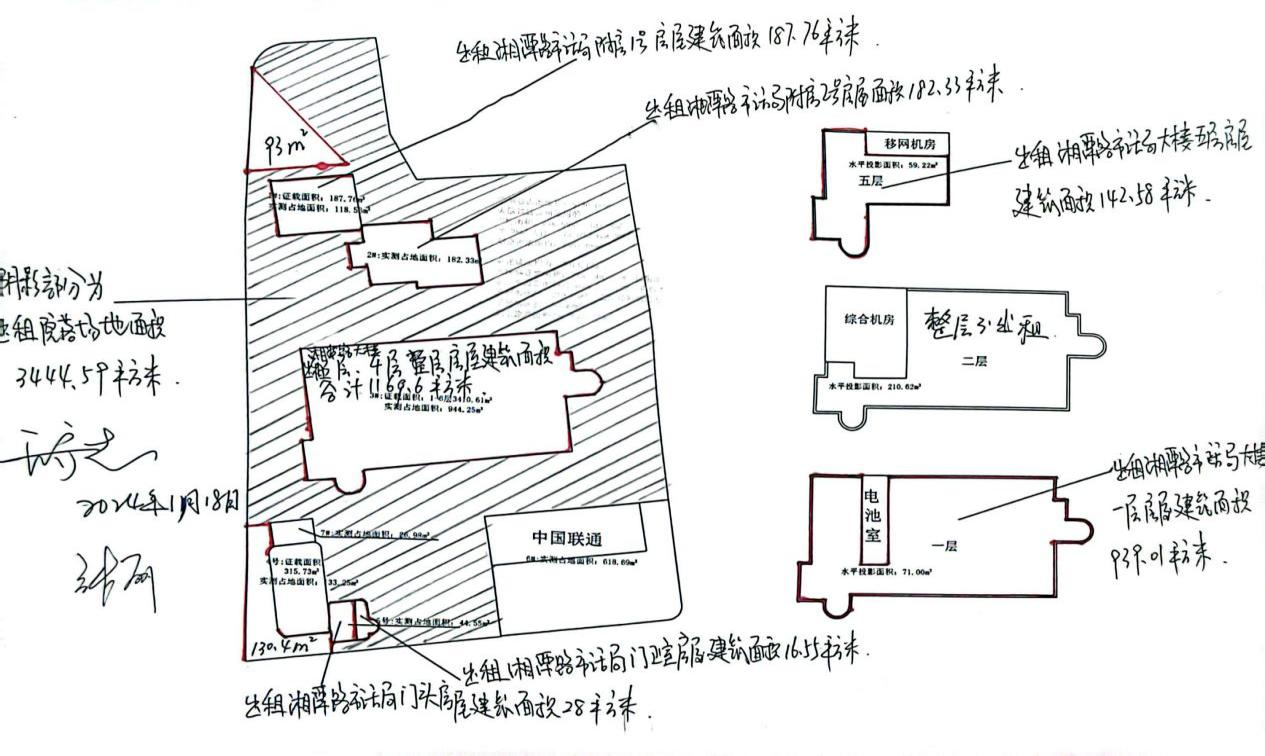 出租湘潭路市话局附房1号房屋建筑面积187.76平方米.
出租湘潭路市话局附房2号房屋面积182.33平方米.
93m²
1#:证载面积：187.76m²
实测占地面积：118.58m²
2#:实测占地面积：182.33m²
移网机房
水平投影面积：59.22m²
五层
出租湘潭路市话局大楼五层房屋
建筑面积142.58平方米.
阴影部分为
出租院落场地面积
3444.59平方米.
2024年11月18日
湘潭路大楼
4层整层房屋建筑面积
合计1169.6平方米.
3#:证载面积：1-6层3410.61m²
实测占地面积：944.25m²
综合机房
整层不出租
二层
水平投影面积：210.62m²
出租湘潭路市话局大楼
一层房屋建筑面积
939.01平方米.
电池室
一层
水平投影面积：71.00m²
7#:实测占地面积：26.98m²
4号:证载面积
315.73m²
实测占地面积：
33.25m²
5号:实测占地面积：44.55m²
130.4m²
中国联通
6#:实测占地面积：618.69m²
出租湘潭路市话局门卫室房屋建筑面积16.55平方米.
出租湘潭路市话局门头房屋建筑面积28平方米.